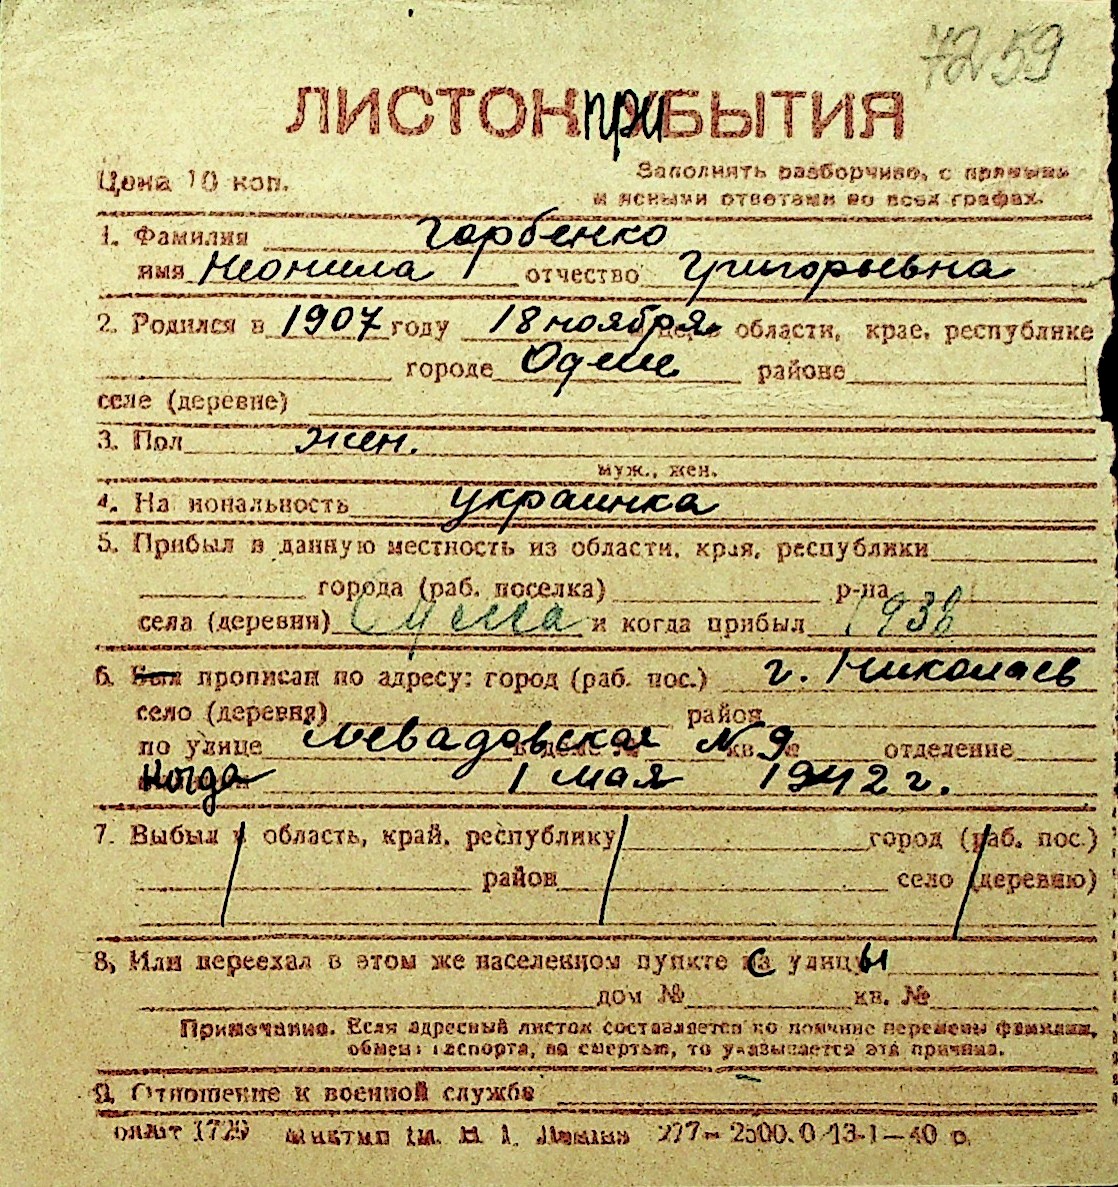 7259
ЛИСТОК ПРИБЫТИЯ
Цена 10 коп.
Заполнять разборчиво, с прямыми
и ясными ответами во всех графах.
1. Фамилия Горбенко
имя Неонила отчество Григорьевна
2. Родился в 1907 году 18 ноября области, крае, республике
городе Одессе районе
селе (деревне)
3. Пол жен.
муж., жен.
4. Национальность украинка
5. Прибыл в данную местность из области, края, республики
города (раб. поселка) р-на
села (деревни) и когда прибыл 193
6. Был прописан по адресу: город (раб. пос.) г. Николаев
село (деревня) район
по улице Левадовская № 9 кв. № отделение
когда 1 мая 1942 г.
7. Выбыл в область, край, республику город (раб. пос.)
район село (деревню)
8. Или переехал в этом же населенном пункте с улицы
дом № кв. №
Примечание. Если адресный листок составляется по причине перемены фамилии,
обмена паспорта, за смертью, то указывается эта причина.
9. Отношение к военной службе
1729 277–2500.0 13-1–40 р.